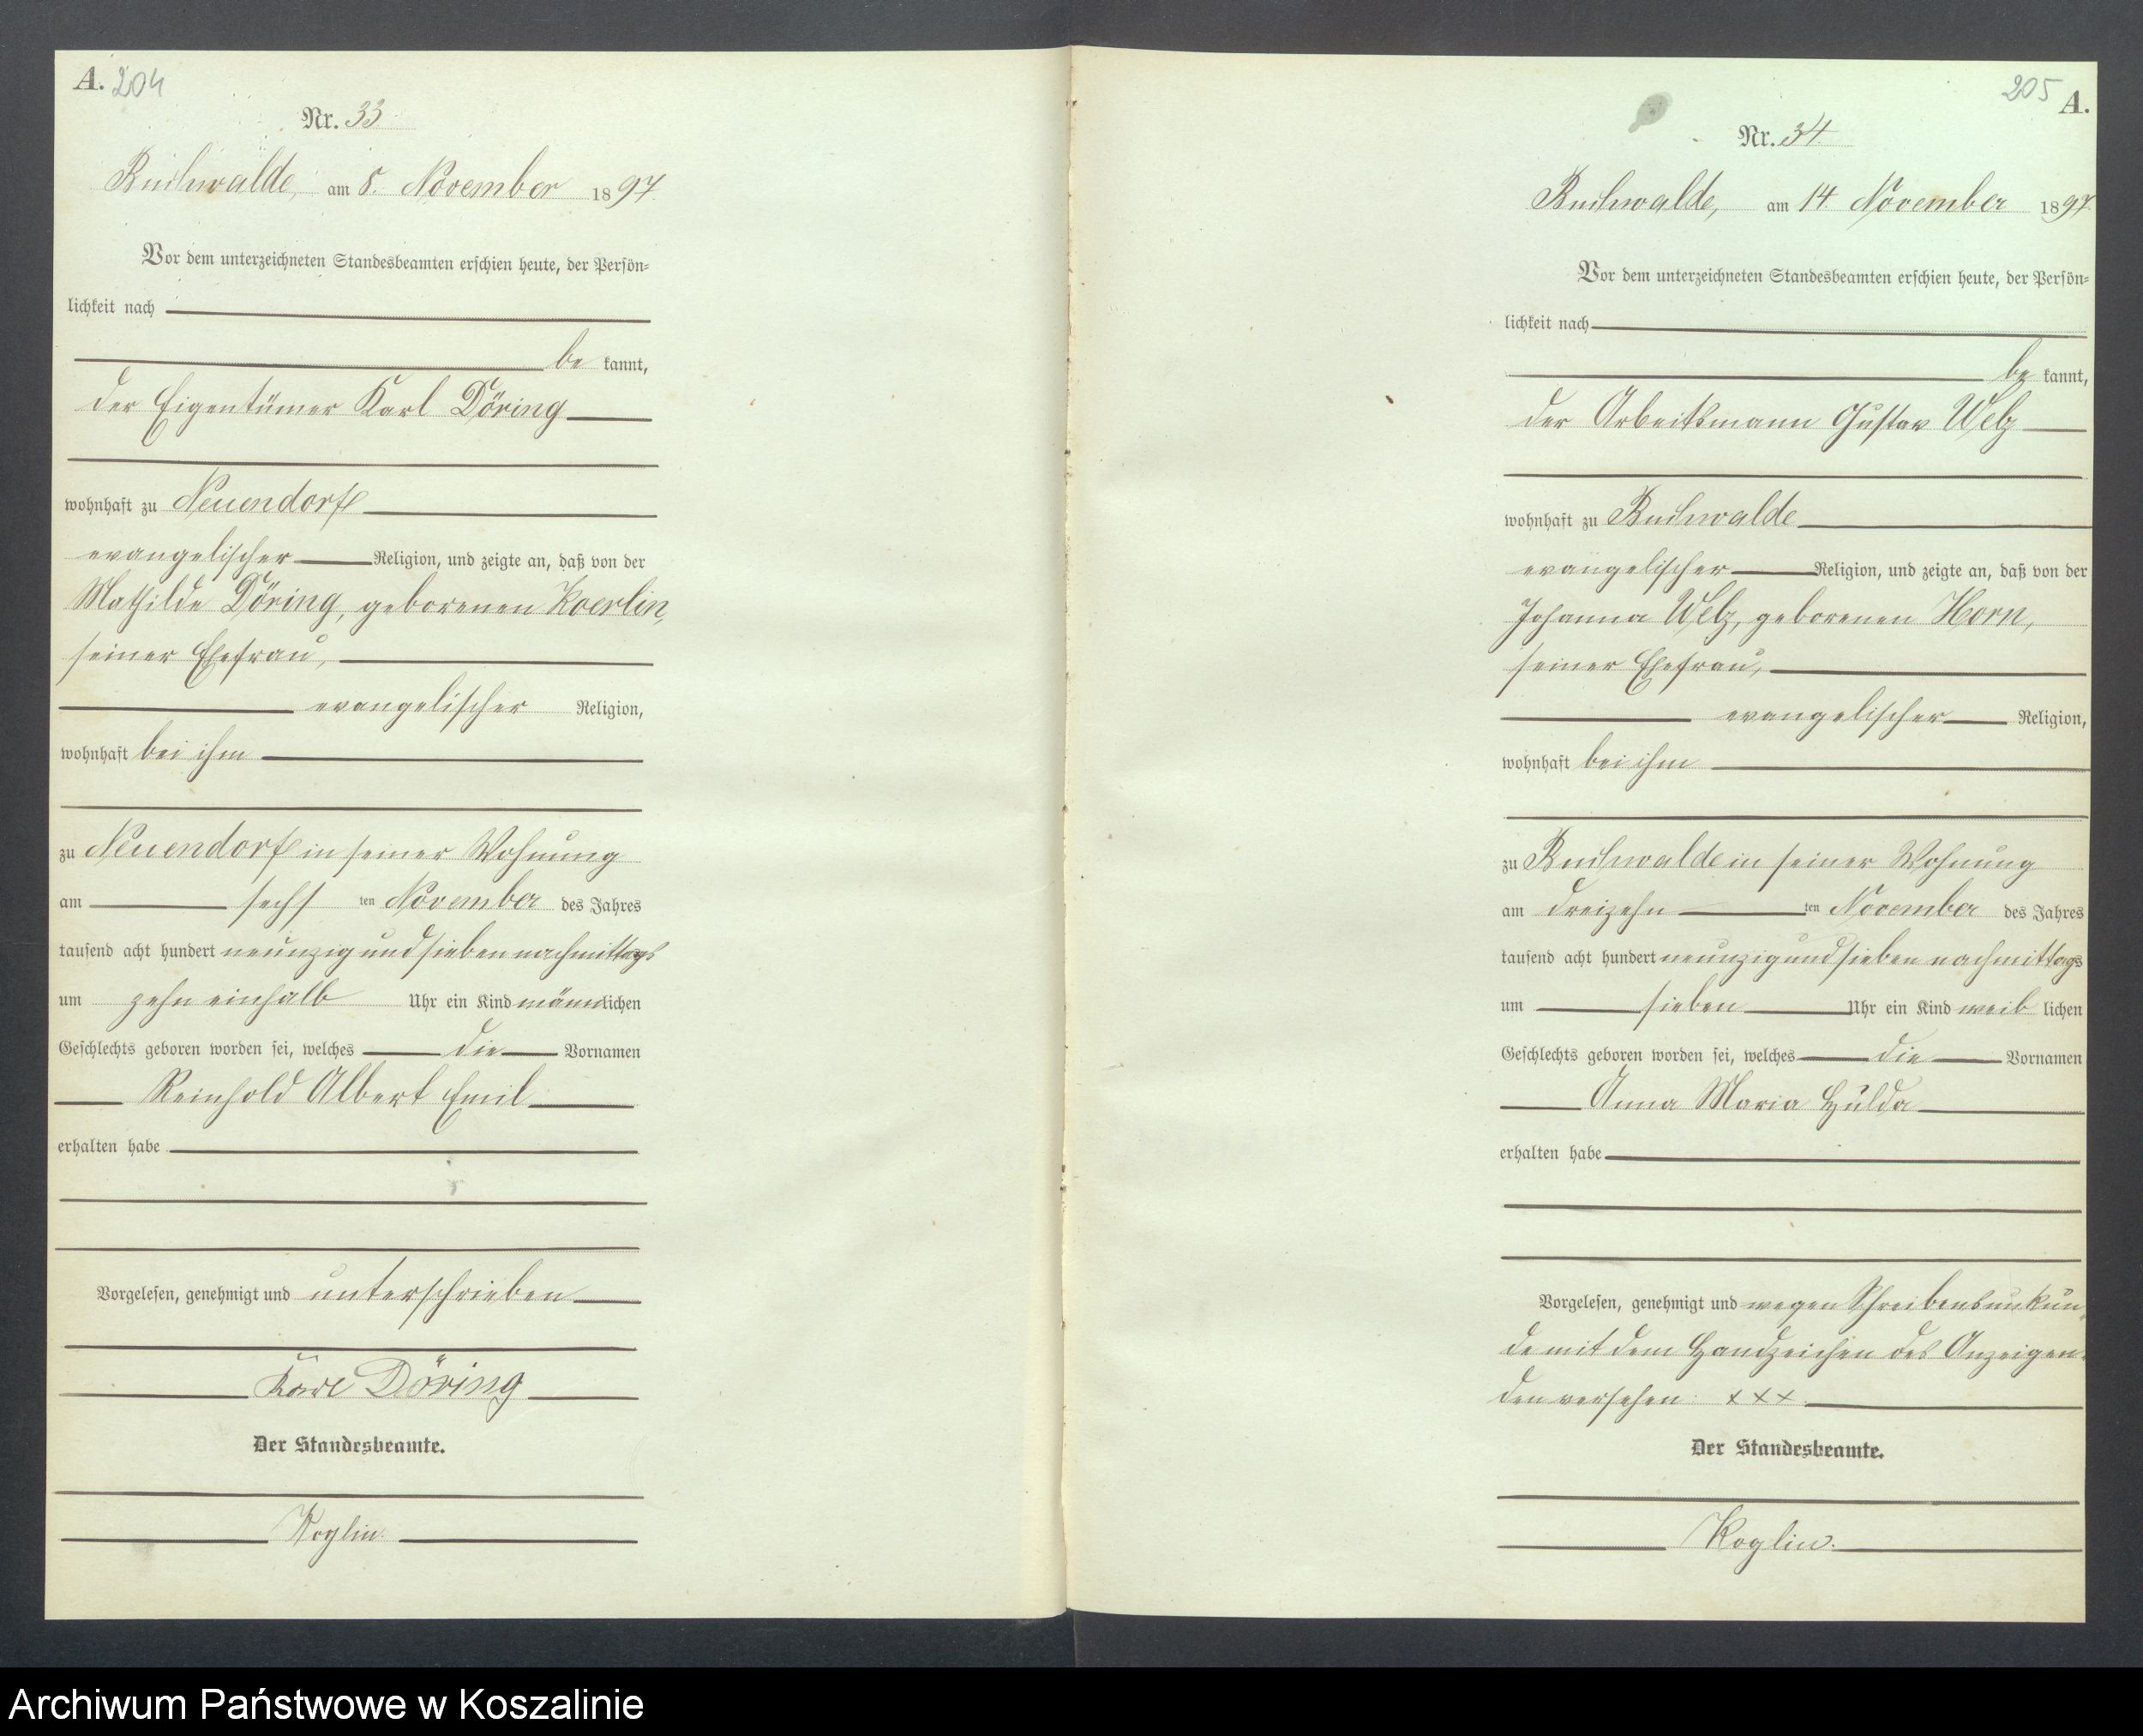 A. 204
Nr. 33
Buchwalde, am 8. November 1897.
Vor dem unterzeichneten Standesbeamten erschien heute, der Persön=
lichkeit nach
be kannt,
der Eigentümer Karl Döring
wohnhaft zu Neuendorf
evangelischer Religion, und zeigte an, daß von der
Mathilde Döring, geborenen Koerlin,
seiner Ehefrau,
evangelischer Religion,
wohnhaft bei ihm
zu Neuendorf in seiner Wohnung
am sechs ten November des Jahres
tausend acht hundert neunzig und sieben nachmittags
um zehn einhalb Uhr ein Kind männlichen
Geschlechts geboren worden sei, welches die Vornamen
Reinhold Albert Emil
erhalten habe
Vorgelesen, genehmigt und unterschrieben
Karl Döring
Der Standesbeamte.
Koglin.
205 A.
Nr. 34.
Buchwalde, am 14. November 1897.
Vor dem unterzeichneten Standesbeamten erschien heute, der Persön=
lichkeit nach
be kannt,
der Arbeitsmann Gustav Welz
wohnhaft zu Buchwalde
evangelischer Religion, und zeigte an, daß von der
Johanna Welz, geborenen Horn,
seiner Ehefrau,
evangelischer Religion,
wohnhaft bei ihm
zu Buchwalde in seiner Wohnung
am dreizehn ten November des Jahres
tausend acht hundert neunzig und sieben nachmittags
um sieben Uhr ein Kind weib lichen
Geschlechts geboren worden sei, welches die Vornamen
Anna Maria Hulda
erhalten habe
Vorgelesen, genehmigt und wegen Schreibensunkun
de mit dem Handzeichen des Anzeigen
den versehen. × × ×.
Der Standesbeamte.
Koglin.
Archiwum Państwowe w Koszalinie